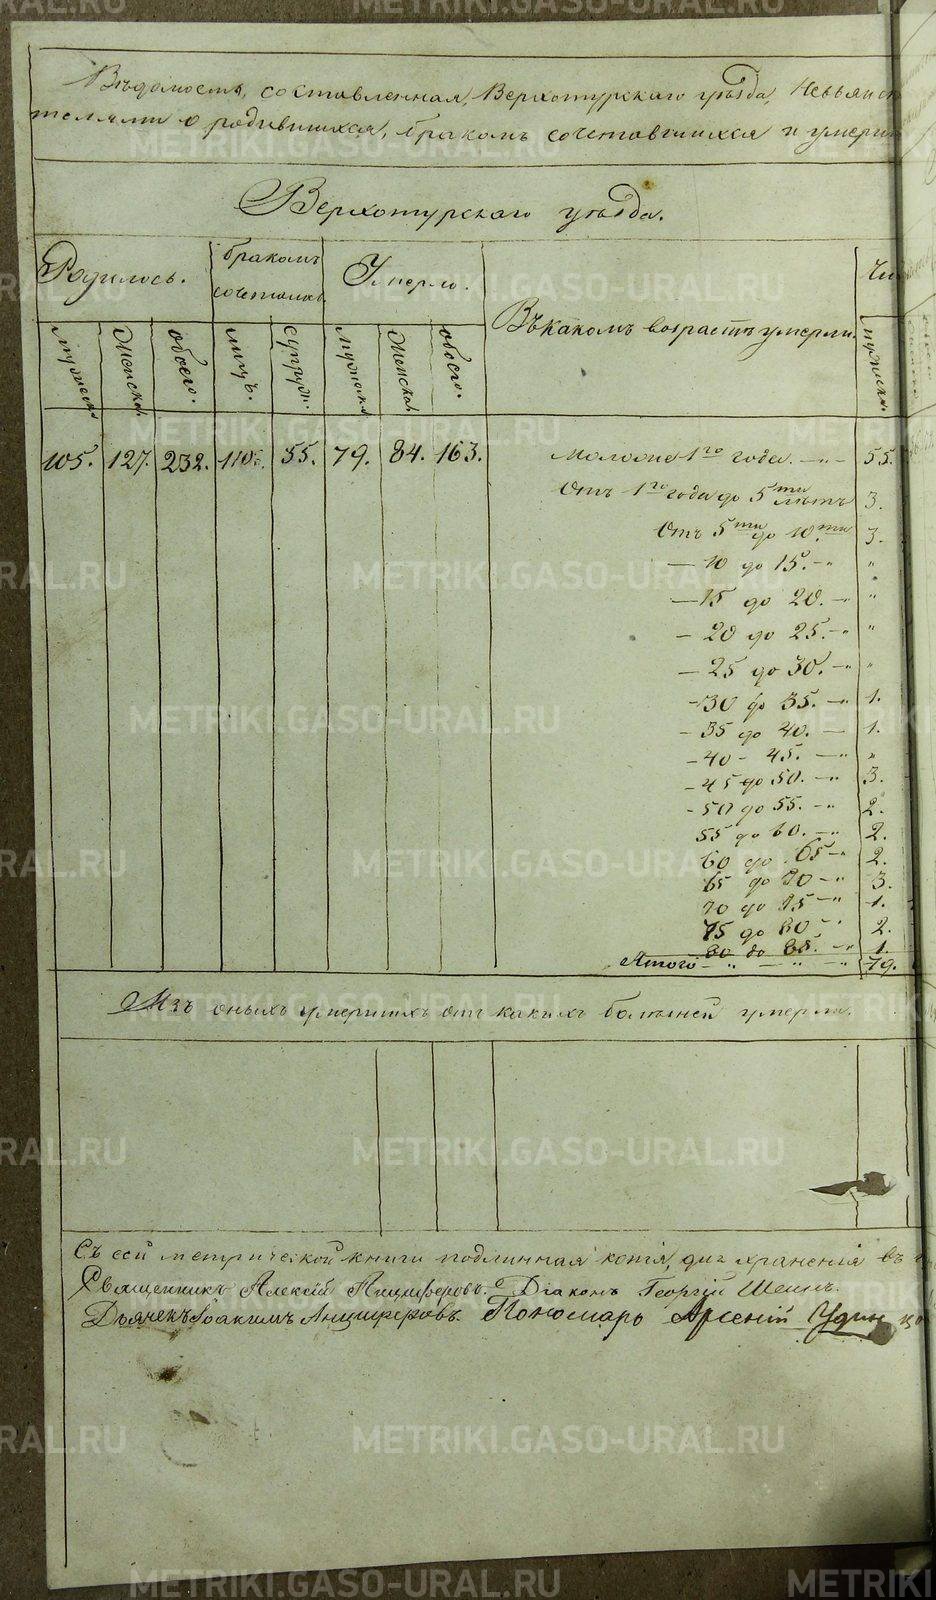 Вѣдомость, составленная, Верхотурскаго уѣзда, Невьянск
телями о родившихся, бракомъ сочетавшихся и умерш
Верхотурскаго уѣзда.
Родилось. бракомъ сочеталось Умерло. Въ какомъ возрастѣ умерли. Чи
мужеска Женска. обоего. лицъ. супруж. мужеска Женска. обоего. мужеска.
105. 127. 232. 110. 55. 79. 84. 163. Моложе 1го года. — „ — 55.
Отъ 1го года до 5ти лѣтъ 3.
Отъ 5ти до 10ти 3.
— 10 до 15. — „ „
— 15 до 20. — „ „
— 20 до 25. — „ „
— 25 до 30. — „ „
— 30 до 35. — „ 1.
— 35 до 40. — 1.
— 40 - 45. — „ „
— 45 до 50. — „ 3.
- 50 до 55. — „ 2.
55 до 60. — „ 2.
60 до 65 — „ 2.
65 до 70 — „ 3.
70 до 75 — „ 1.
75 до 80 — „ 2.
80 до 85. — „ 1.
Итого — „ — „ — „ 79.
Изъ оныхъ умершихъ отъ какихъ болѣзней умерли.
Съ сей метрической книги подлинная копія, для храненія въ
Священникъ Алексій Анциферовъ. Діаконъ Георгій
Дьячекъ Іоакимъ Анциферовъ. Пономарь Арсеній Удин
METRIKI.GASO-URAL.RU